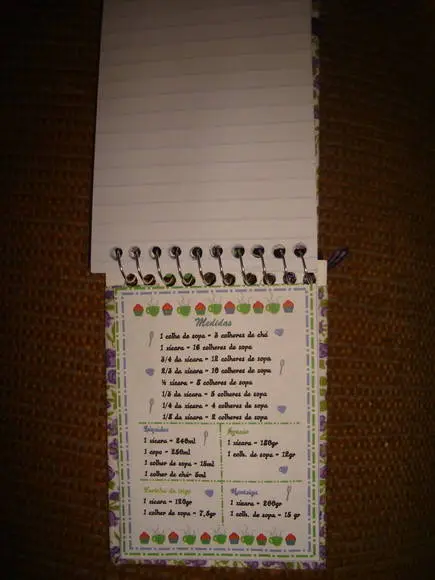 Medidas
1 colhe de sopa = 3 colheres de chá
1 xícara = 16 colheres de sopa
3/4 da xícara = 12 colheres de sopa
2/3 da xícara = 10 colheres de sopa
½ xícara = 8 colheres de sopa
1/3 da xícara = 5 colheres de sopa
1/4 da xícara = 4 colheres de sopa
1/8 da xícara = 2 colheres de sopa
Líquidos
1 xícara = 240ml
1 copo = 250ml
1 colher de sopa = 15ml
1 colher de chá= 5ml
Açúcar
1 xícara = 180gr
1 colh. de sopa = 12gr
Farinha de trigo
1 xícara = 120gr
1 colher de sopa = 7,5gr
Manteiga
1 xícara = 200gr
1 colh. de sopa = 15 gr